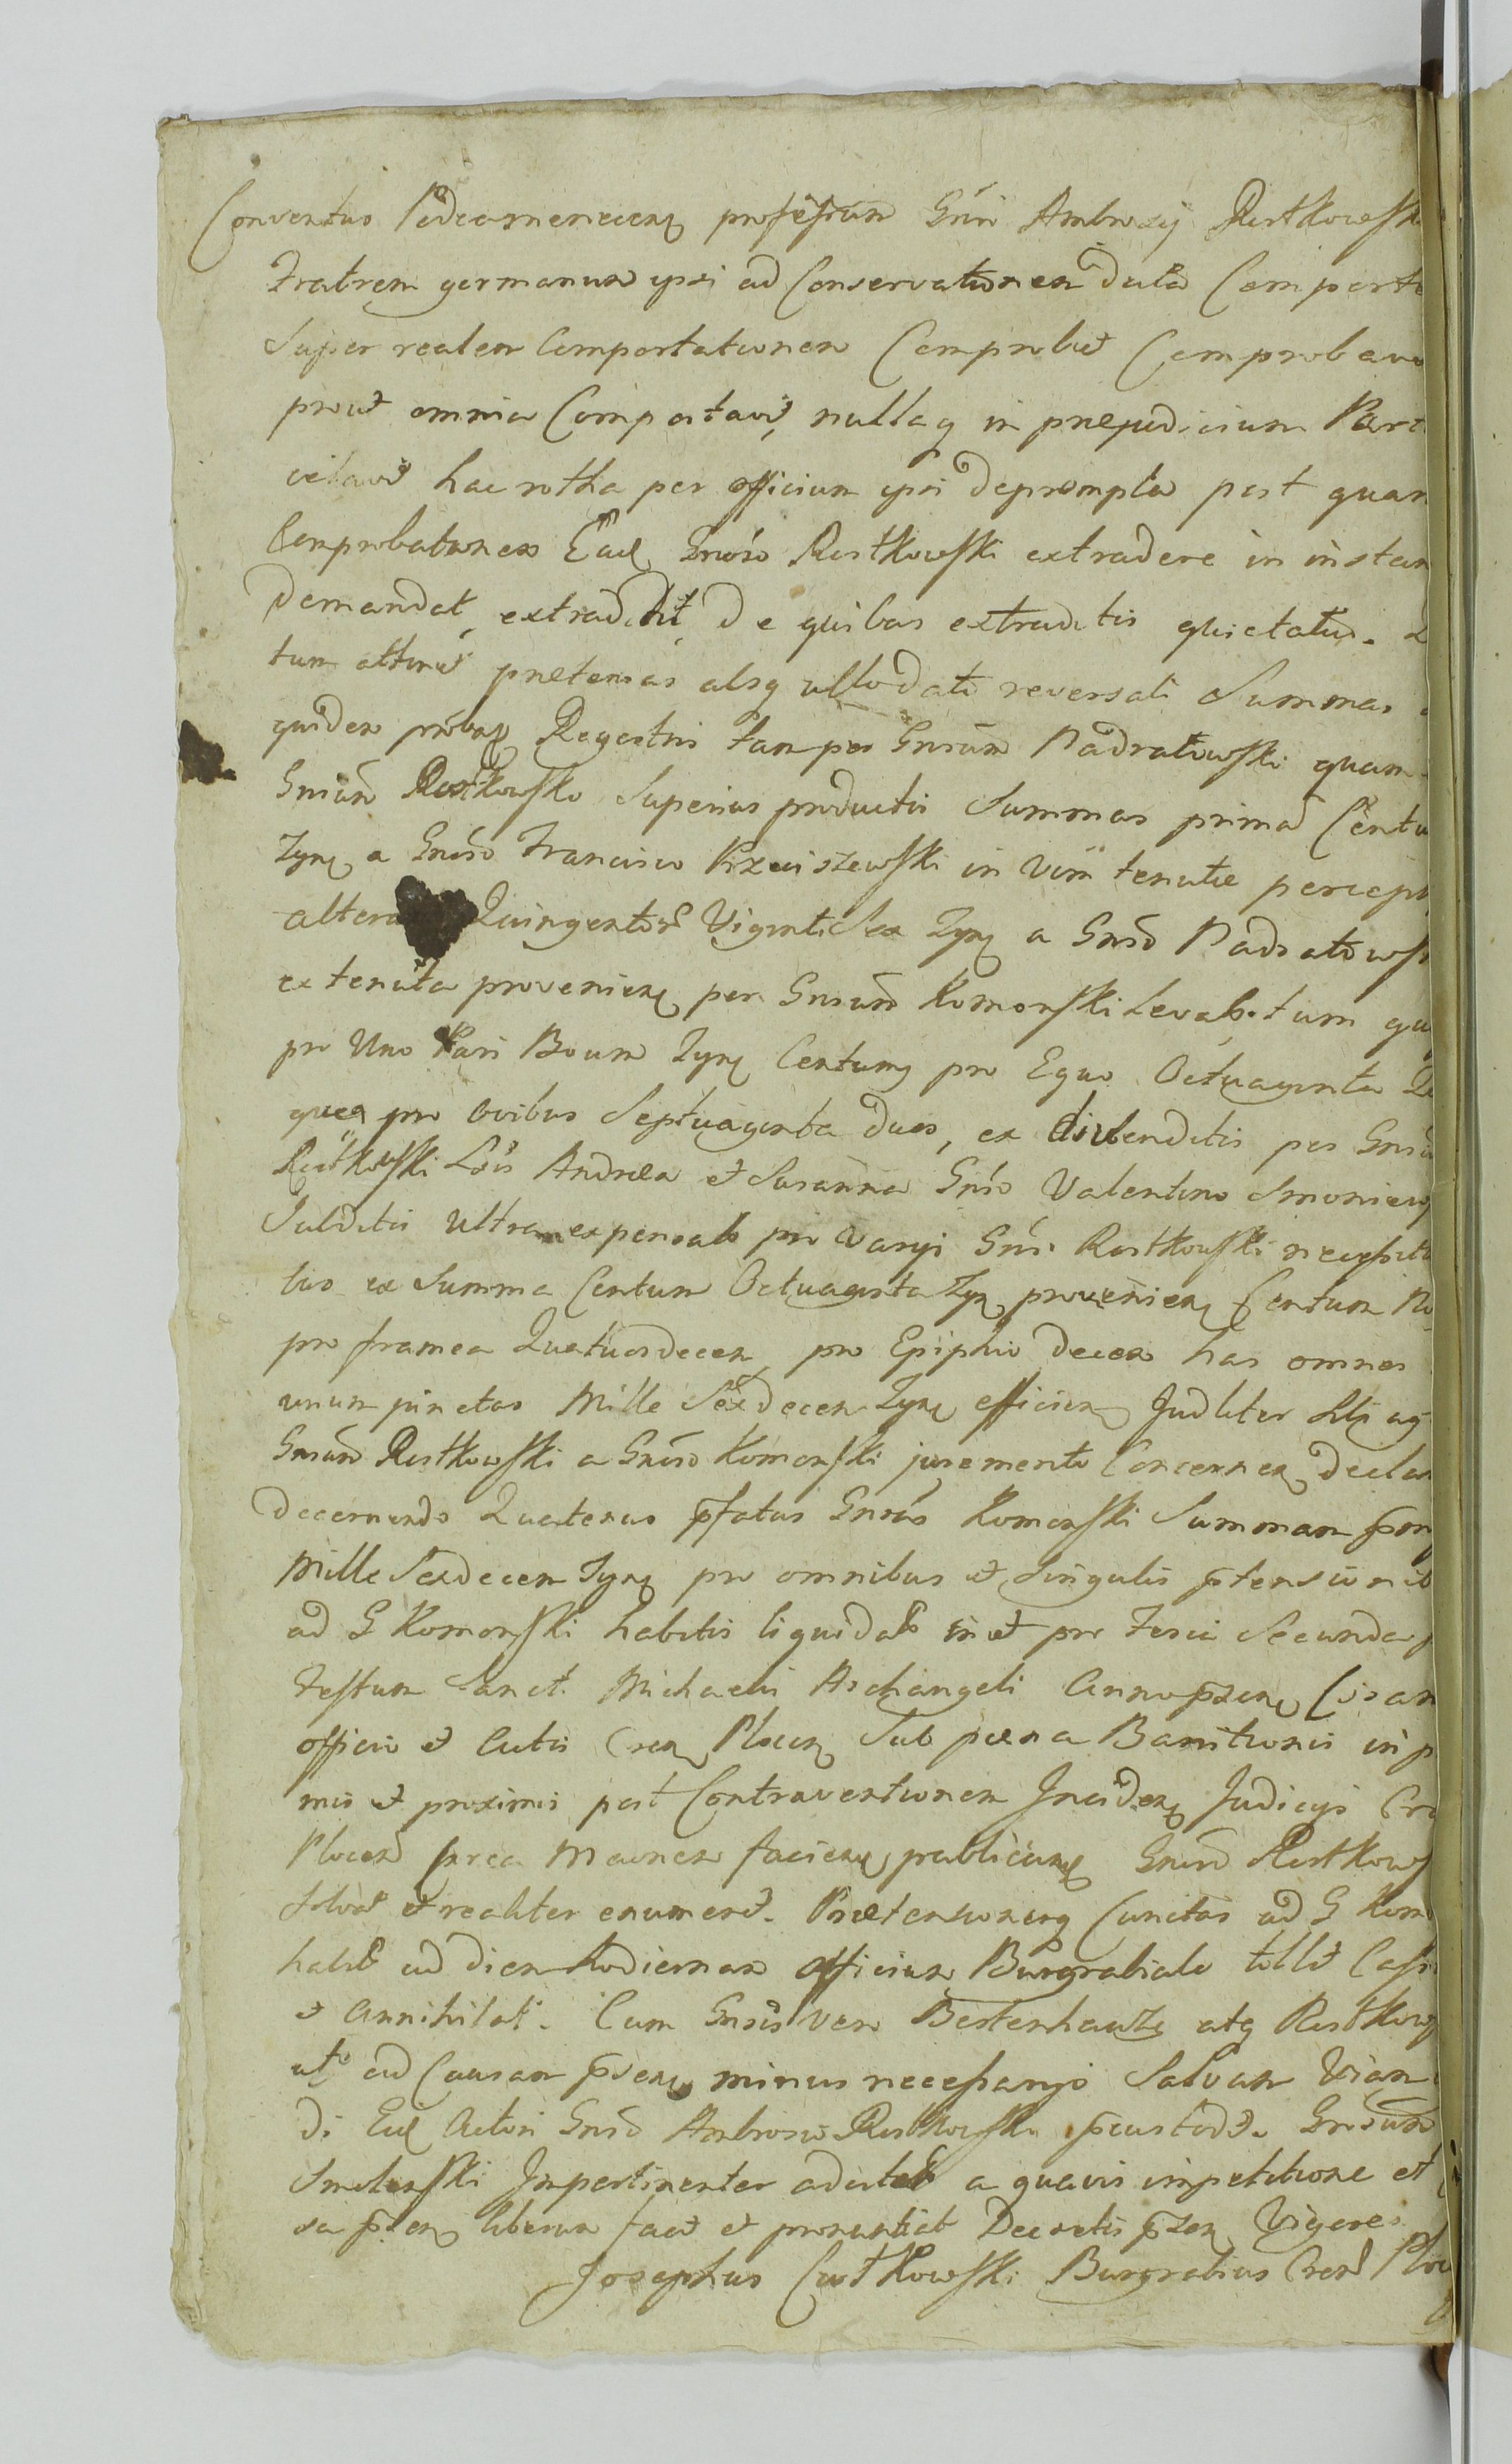 Conventus professum Gnsi Ambrosij Rostkowski
Fratrem germanum ipsi ad Conservationem data Comporta
Super realem Comportationem Comprobet Comprobavit
prout omnia Comportavit, nullaq in prejudicium Part
celavit hac rotha per officium ipsi deprompta post quam
Comprobationem Ead Gnoso Rostkowski extradere in instan
demandat, extradidit, de quibus extraditis quietatur.
tum attinet pretensas absq ullo dato reversali Summas
quidem Regestris tam per Gnsum Nadratowski quam
Gnsum Rostkowski Superius productis Summas primam Centu
Tynf a Gnoso Francisco Krzewiszewski in vim tenutae percept
alteram Quingentor Viginti Sex Tynf a Gnso Nadratows
ex tenuta provenien per Gnsum Komorski levab. tum
pro Uno Pari Boum Tynf Centum, pro Equo Octuaginta
que pro ovibus Septuaginta duos, ex divenditis per Gns
Rostkowski Andrea et Susanna Gnso Valentino Smoniew
Subditis ultra expensab pro varys Gnsi Rostkowski necessit
bus ex Summa Centum Octuaginta Tynf provenien Centum
pro framea Quatuordecem, pro Epiphio decem has omnes
unum junctas Mille Sexdecem Tynf efficien Judliter
Gnsum Rostkowski a Gnoso Komorski juramento Concernen declar
decernendo Quatenus pfatus Gnsus Komorski Summam
Mille Sexdecem Tynf pro omnibus et Singulis ptensionib
ad G Komorski habitis liquidat in et pro Feria Secunda
Festum Sanct. Michaelis Archangeli Anno pzen Coram
officio et Actis Cren Plocen Sub paena Bannitionis in p
mis et proximis post Contraventionem Inciden Judicys Cr
Plocen Maonem facien publican Gnso Rostkows
Solvat et realiter enumeret. Praetensionesq Cunctas ad G Kom
habit ad diem hodiernam officium Burgrabiale tollit Cass
et Annihilat. Cum Gnsis vero Bestenhauz atq Rostkow
uti ad Causam psen minus necessarijs Salvam Viam
di Eid Actori Gnso Ambrosio Rostkowski pcustodit. Gnsum
Smolenski Impertinenter adcitat a quavis impetitione et
sa pzen liberum facit et pronuntiat Decretis pzen Vigore.
Josephus Burgrabius Cren Ploc